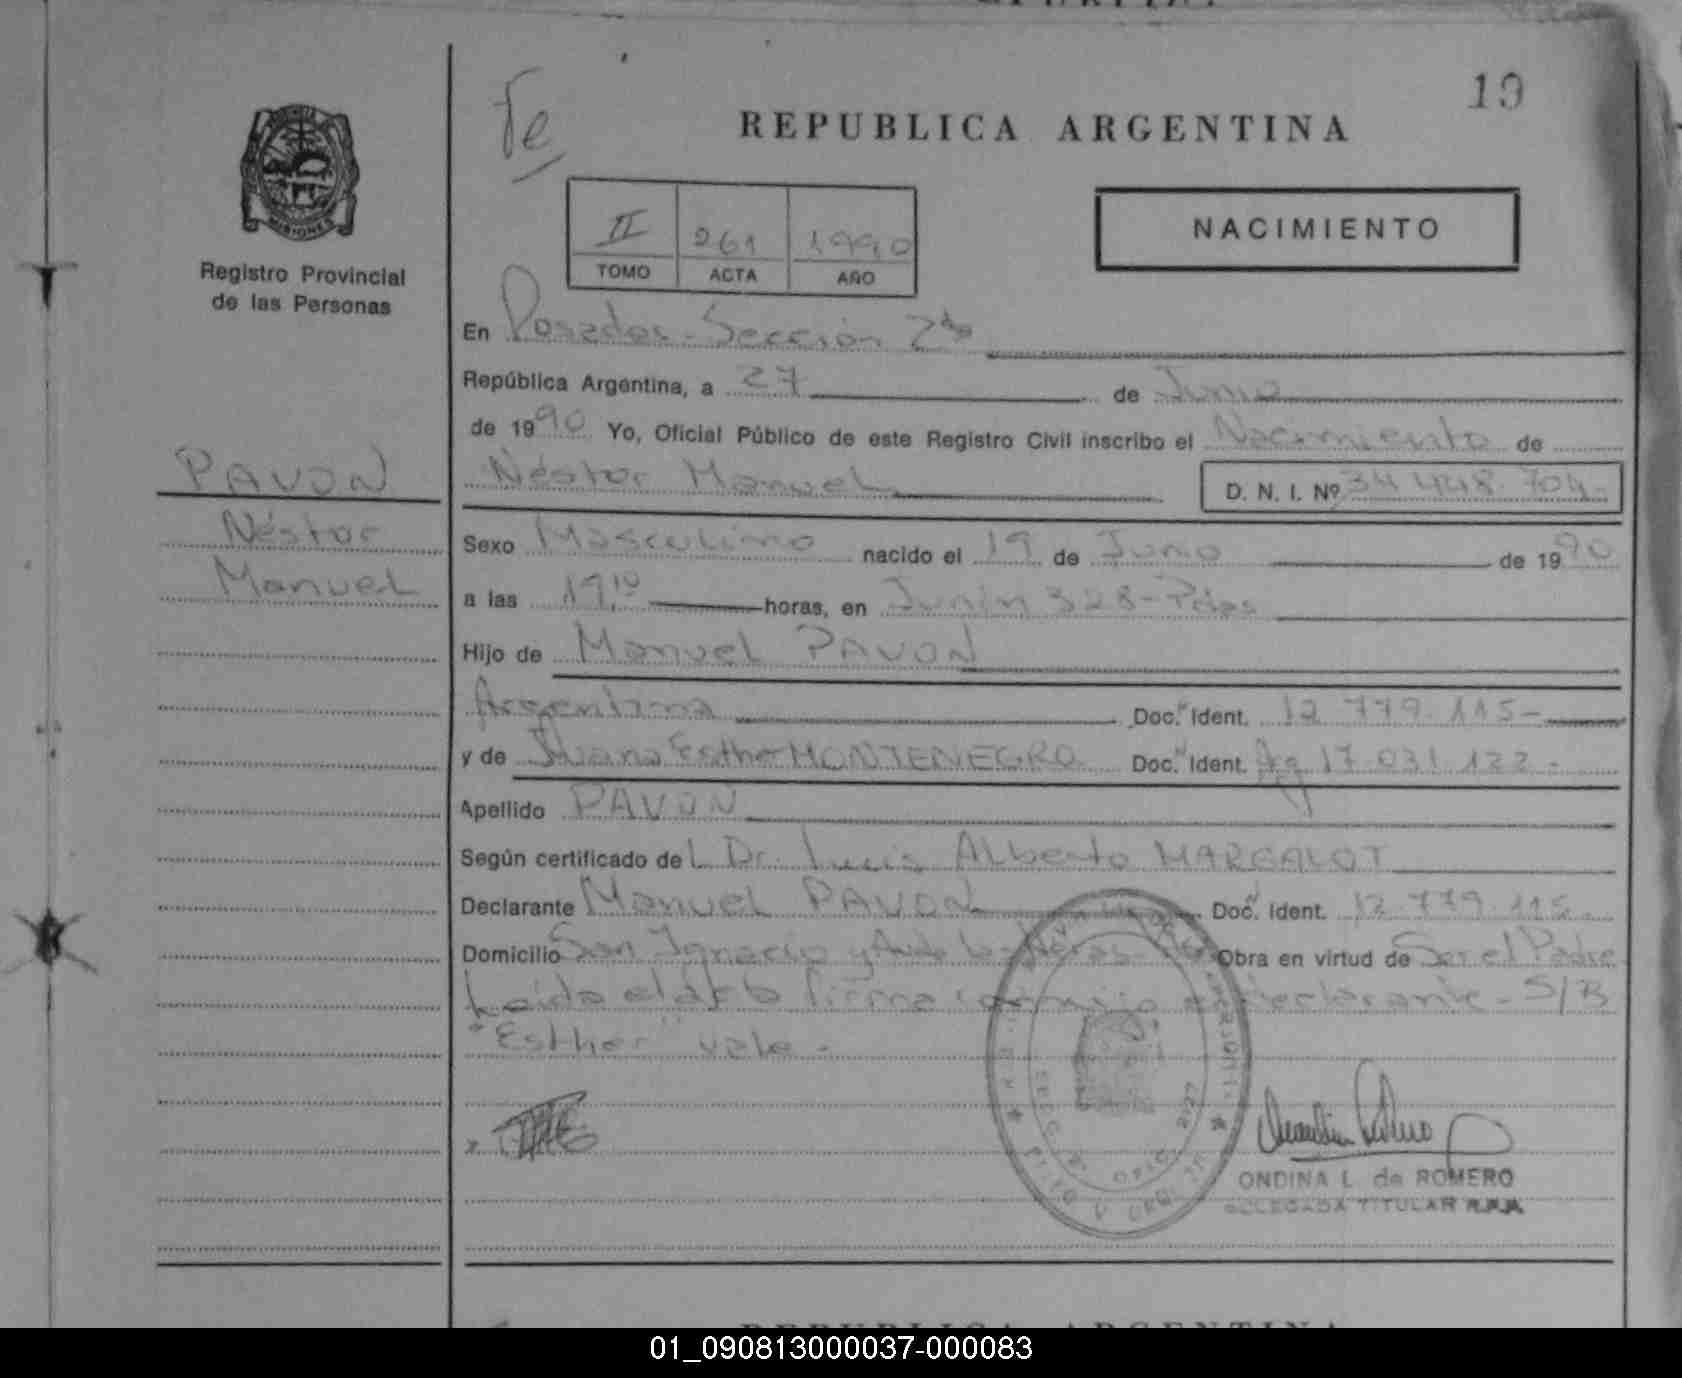 19
Te
REPUBLICA ARGENTINA
MISIONES
Registro Provincial
de las Personas
II 261 1990
TOMO ACTA AÑO
NACIMIENTO
En Posadas - Sección 2da
República Argentina, a 27 de Junio
de 1990 Yo, Oficial Público de este Registro Civil inscribo el Nacimiento de
PAVON
Néstor
Manuel
Néstor Manuel D. N. I. Nº 34 448.704-
Sexo Masculino nacido el 19 de Junio de 1990
a las 19,10 horas, en Junín 328 - Pdas
Hijo de Manuel PAVON
Argentina Doc. Ident. 12 779.115-
y de Juana Esther MONTENEGRO Doc. Ident. Ag 17 031 122-
Apellido PAVON
Según certificado del Dr. Luis Alberto MARGALOT
Declarante Manuel PAVON Doc. Ident. 12.779.115
Domicilio San Ignacio y Avda Las Heras Obra en virtud de Ser el Padre
Leída el acta firma conmigo el declarante - S/B
"Esther" vale -
ONDINA L. de ROMERO
DELEGADA TITULAR R.P.P.
REPUBLICA ARGENTINA
01_090813000037-000083